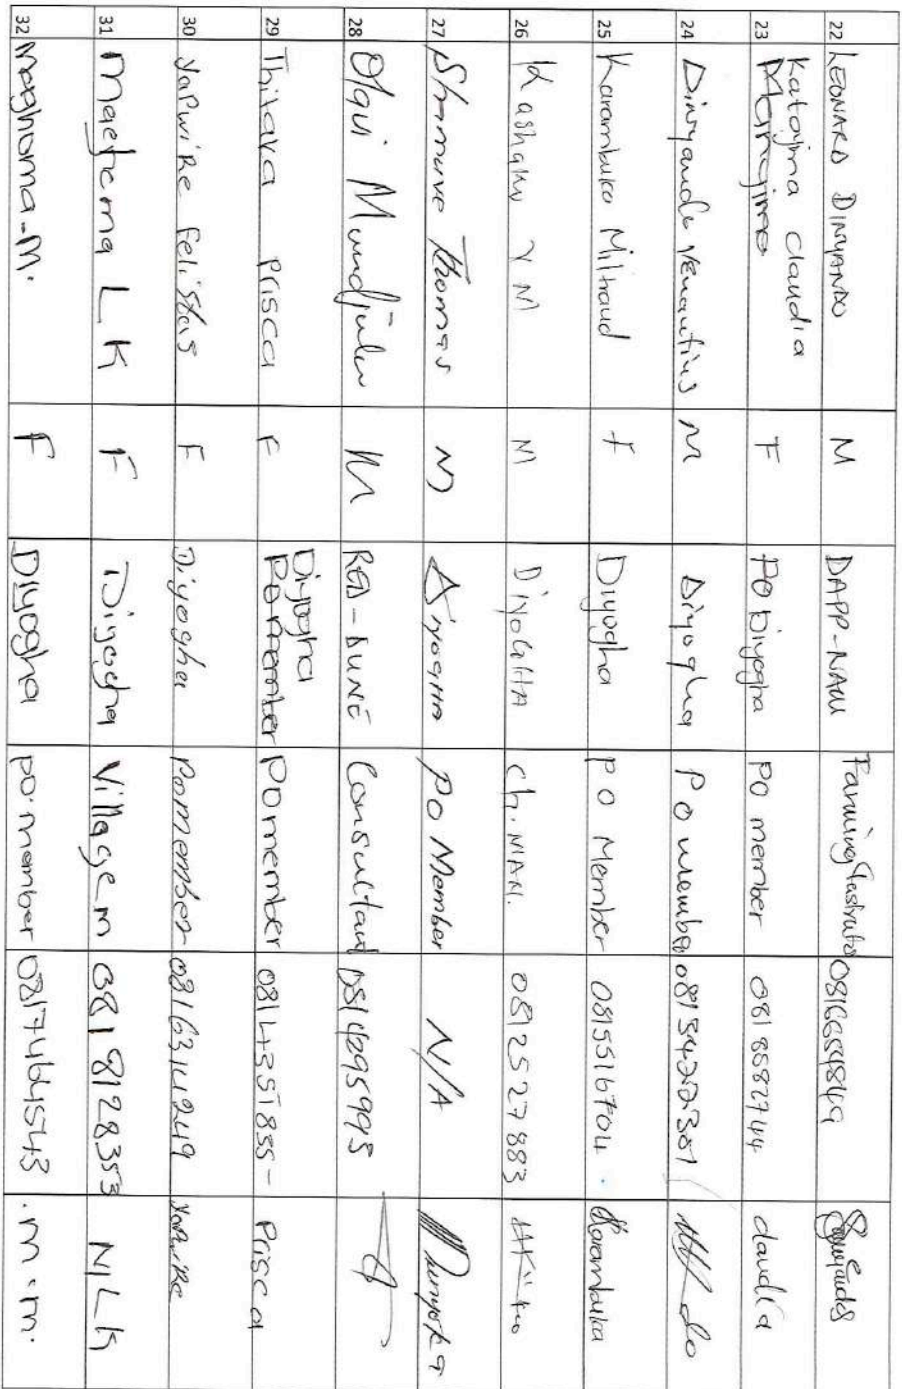 22 LEONARD DINYANDO M DAPP-NAM Farming Instructor 0816684849
23 Katoyima Claudia F PO Diyogha PO member 0818582744 claudia
24 Dinyando Venantius M Diyogha PO member
25 Karambuka Miltraud F Diyogha PO Member 0815516704 Karambuka
26 Kashanu Y M M DiyoGHA Ch. MAN. 0812527883
27 Thomas PO Member N/A
28 Olavi Mundjulu M RED-DUNE Consultant 0814295995
29 Thihava Prisca F Diyogha PO member 0814351855 Prisca
30 Yapwire Felistas F Diyogha Pomember 0816314249 Yapwire
31 Maghema L K F Diyogha Village m 0818128353 N L K
32 Maghoma-M. F Diyogha po.member 0817464543 .m.m.